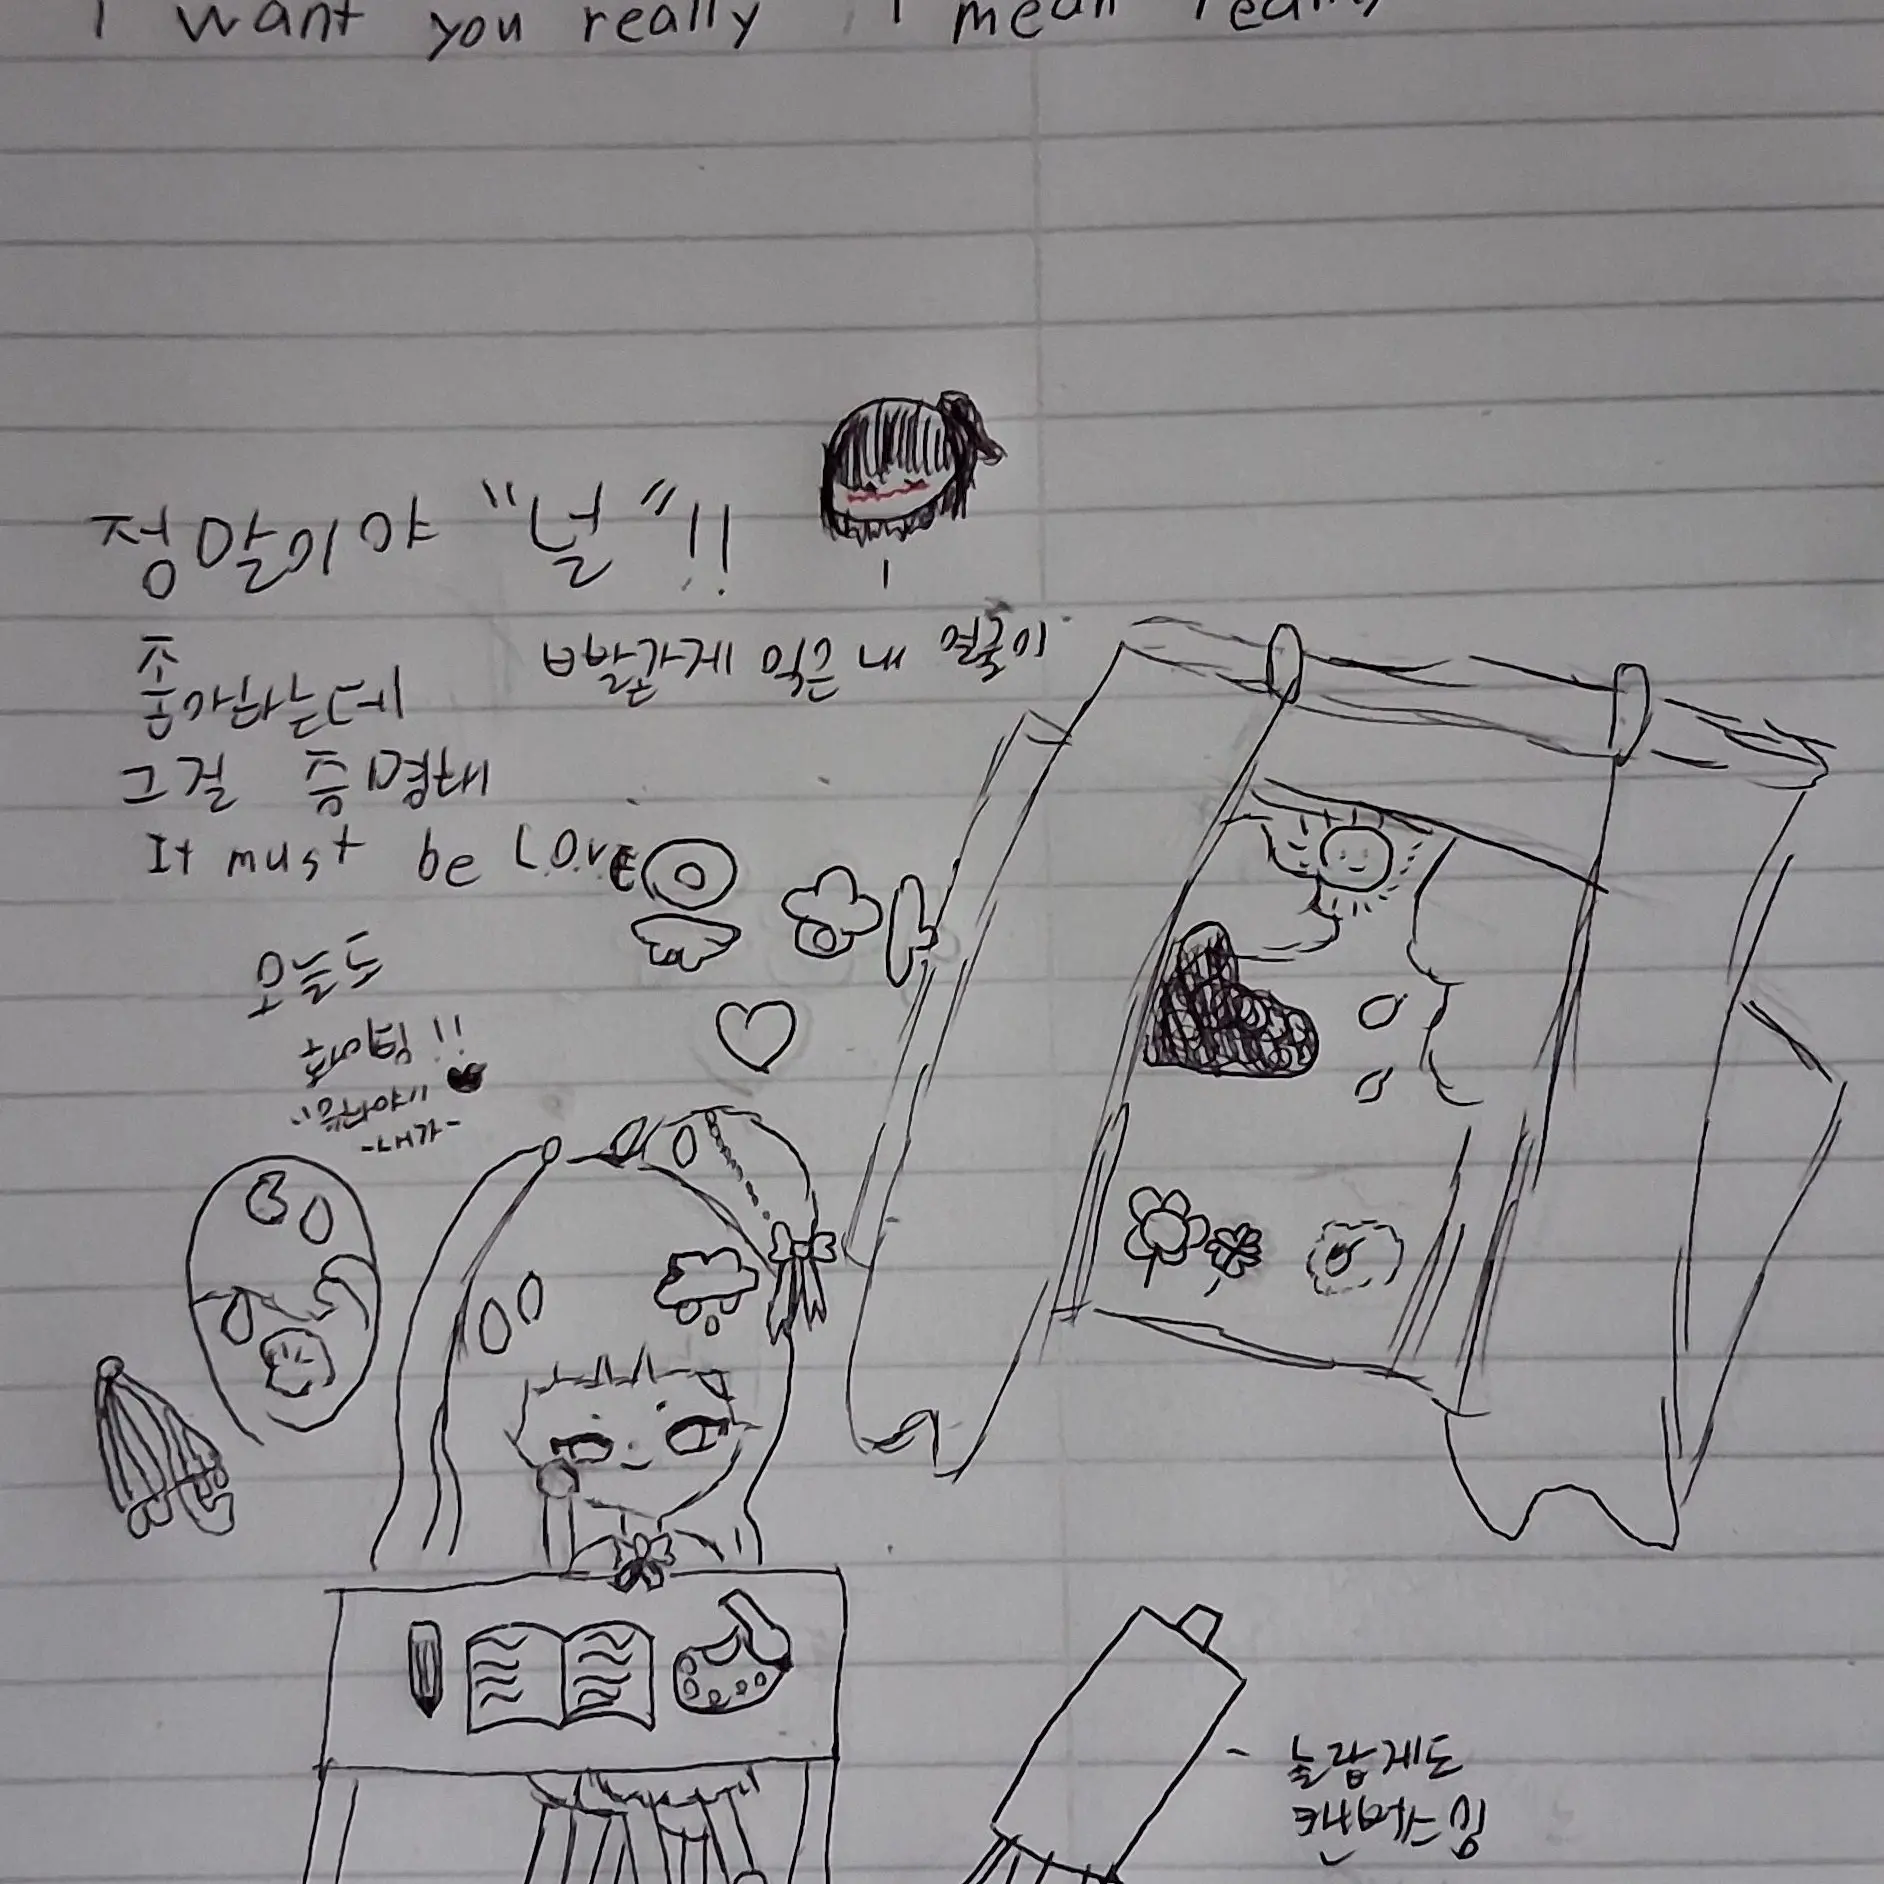 I want you really, I mean really
정말이야 "널"!!
좋아하는데
빨갛게 익은 내 얼굴이
그걸 증명해
It must be LOVE
오늘도
-내가-
놀랍게도
캔버스임